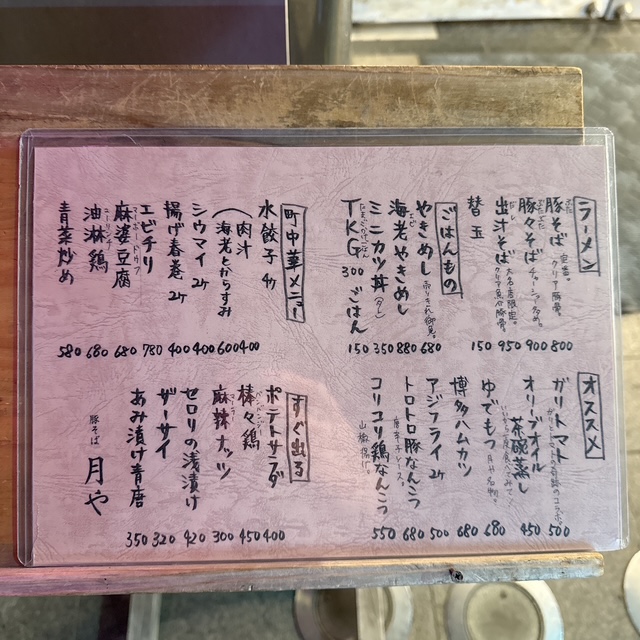 ラーメン
豚そば 定番。クリア豚骨。 800
豚々そば チャーシュー多め。 900
出汁そば 大名店限定。クリア魚介豚骨。 950
替玉 150
ごはんもの
やきめし 売りきれ御免 680
海老やきめし 880
ミニカツ丼(タレ) 350
TKG 300 ごはん 150
町中華メニュー
水餃子 4ヶ
肉汁 400
海老とからすみ 600
シウマイ 2ケ 400
揚げ春巻 2ケ 400
エビチリ 780
麻婆豆腐 680
油淋鶏 680
青菜炒め 580
オススメ
ガリトマト 500
オリーブオイル茶碗蒸し 450
ゆでもつ 680
博多ハムカツ 680
アジフライ 2ケ 500
トロトロ豚なんこつ 680
コリコリ鶏なんこつ 550
すぐ出る
ポテトサラダ 400
棒々鶏 450
麻辣ナッツ 300
セロリの浅漬け 420
ザーサイ 320
あみ漬け青唐 350
豚そば 月や